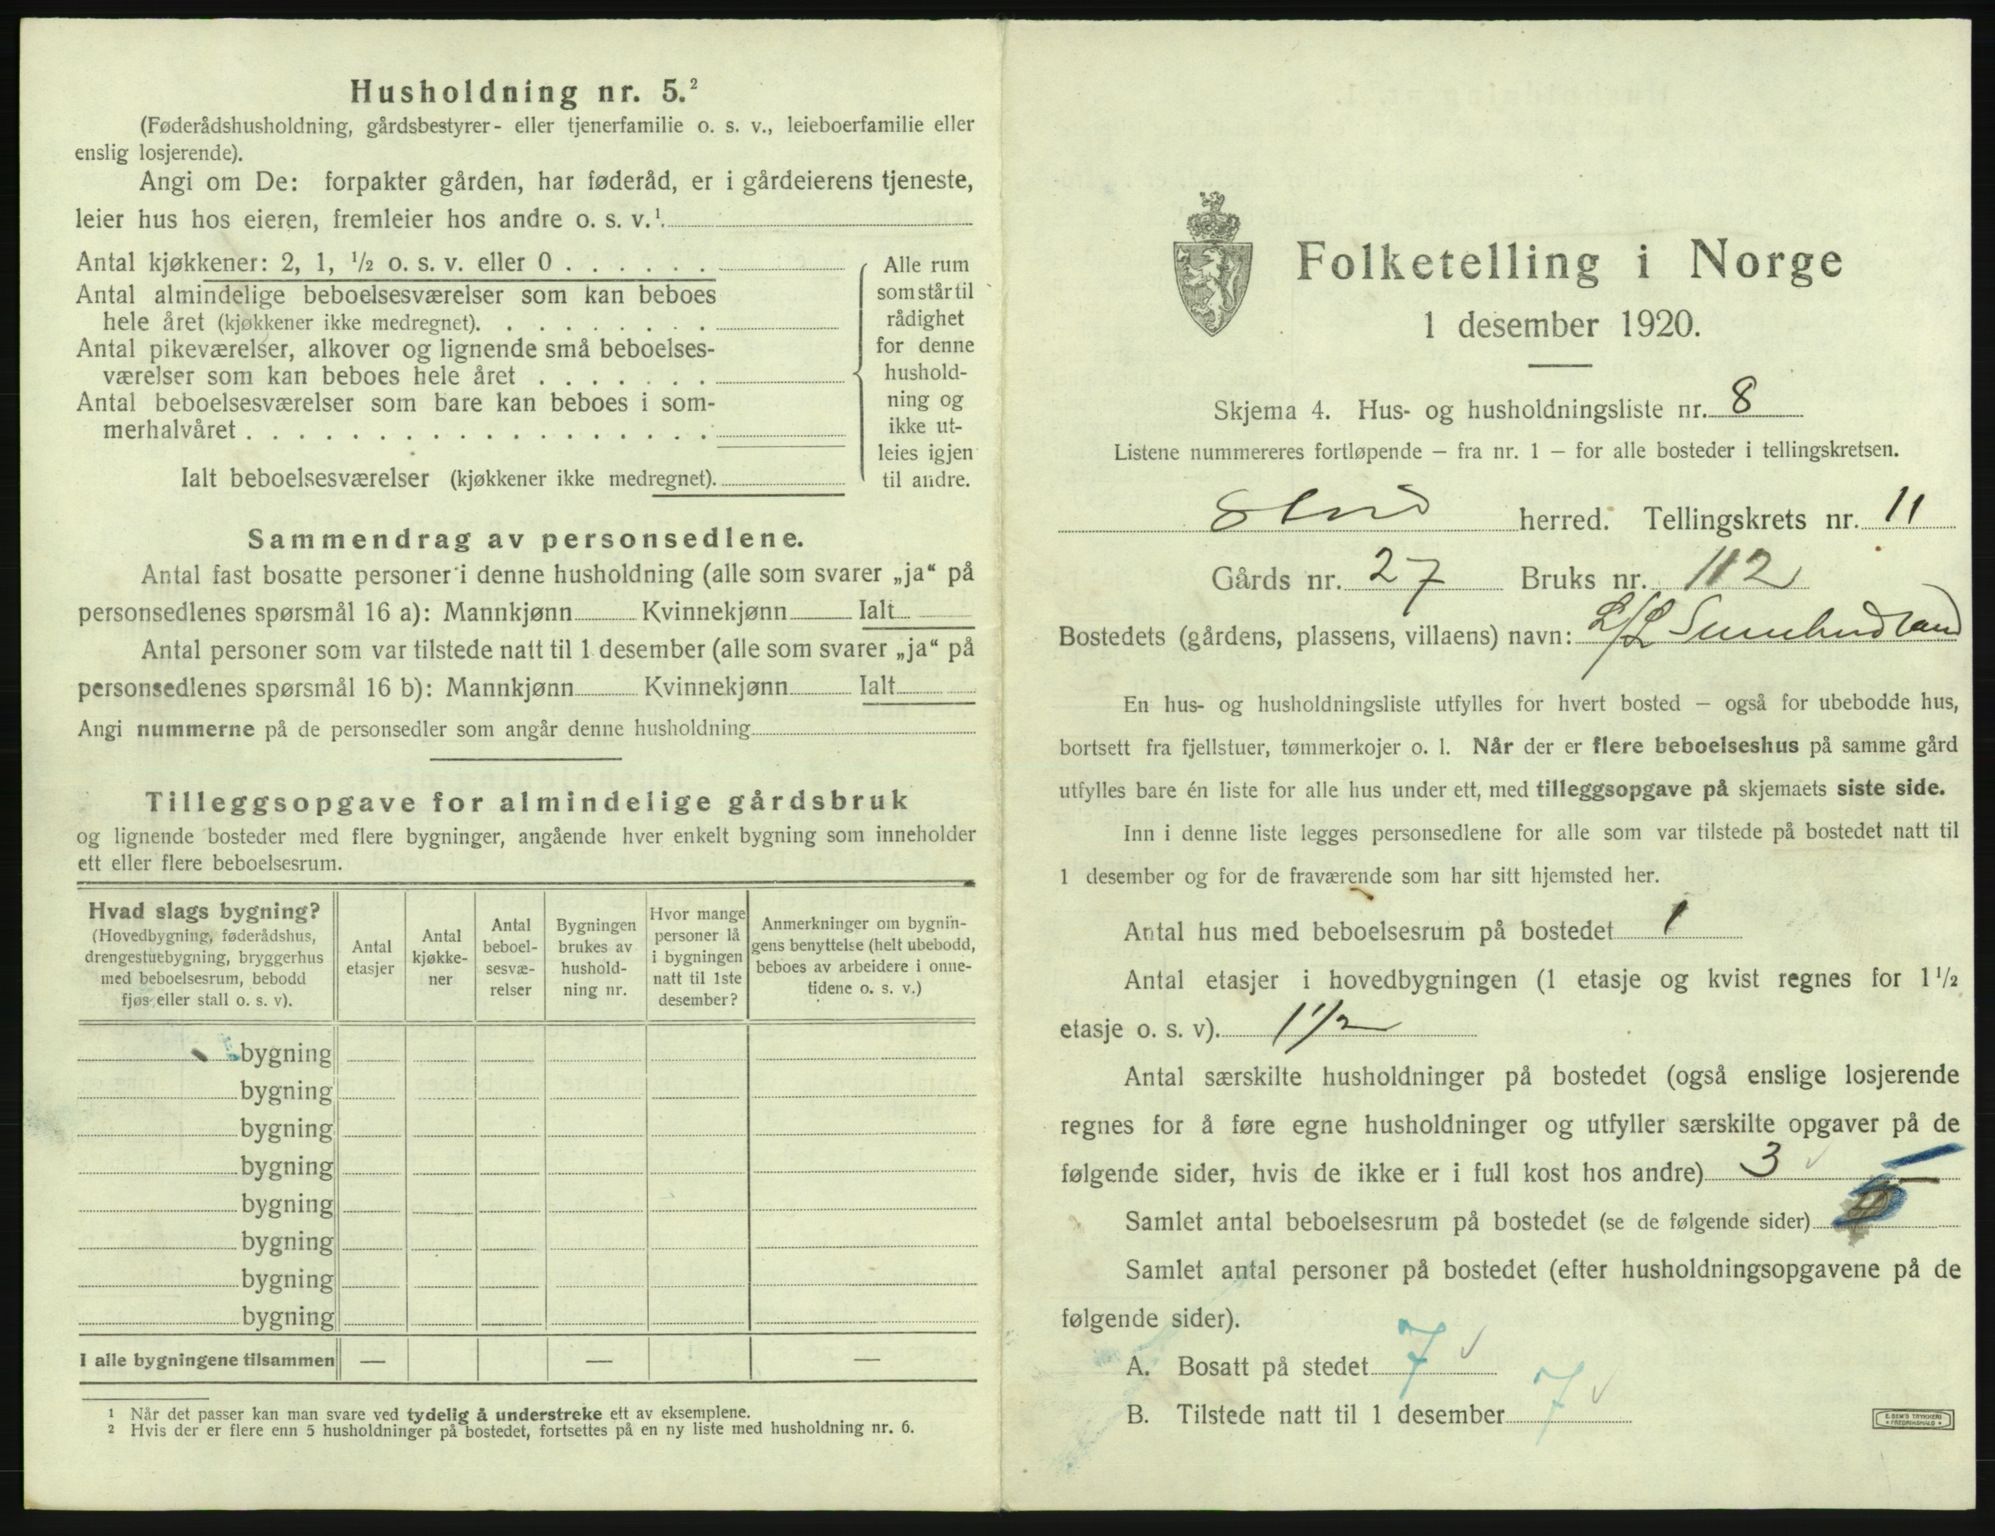 Husholdning nr. 5.²
(Føderådshusholdning, gårdsbestyrer- eller tjenerfamilie o. s. v., leieboerfamilie eller
enslig losjerende).
Angi om De: forpakter gården, har føderåd, er i gårdeierens tjeneste,
leier hus hos eieren, fremleier hos andre o. s. v.¹
Antal kjøkkener: 2, 1, ½ o. s. v. eller 0 . . . . . .
Antal almindelige beboelsesværelser som kan beboes
hele året (kjøkkener ikke medregnet). . . . . . . . .
Antal pikeværelser, alkover og lignende små beboelses-
værelser som kan beboes hele året . . . . . . .
Antal beboelsesværelser som bare kan beboes i som-
merhalvåret . . . . . . . . . . . . . . . . . .
Ialt beboelsesværelser (kjøkkener ikke medregnet).
Alle rum
som står til
rådighet
for denne
hushold-
ning og
ikke ut-
leies igjen
til andre.
Sammendrag av personsedlene.
Antal fast bosatte personer i denne husholdning (alle som svarer „ja“ på
personsedlenes spørsmål 16 a): Mannkjønn Kvinnekjønn Ialt
Antal personer som var tilstede natt til 1 desember (alle som svarer „ja“ på
personsedlenes spørsmål 16 b): Mannkjønn Kvinnekjønn Ialt
Angi nummerne på de personsedler som angår denne husholdning
Tilleggsopgave for almindelige gårdsbruk
og lignende bosteder med flere bygninger, angående hver enkelt bygning som inneholder
ett eller flere beboelsesrum.
Hvad slags bygning?
(Hovedbygning, føderådshus,
drengestuebygning, bryggerhus
med beboelsesrum, bebodd
fjøs eller stall o. s. v).
Antal
etasjer
Antal
kjøkke-
ner
Antal
beboel-
sesvæ-
relser
Bygningen
brukes av
hushold-
ning nr.
Hvor mange
personer lå
i bygningen
natt til 1ste
desember?
Anmerkninger om bygnin-
gens benyttelse (helt ubebodd,
beboes av arbeidere i onne-
tidene o. s. v.)
bygning
bygning
bygning
bygning
bygning
bygning
bygning
bygning
I alle bygningene tilsammen — — —
¹ Når det passer kan man svare ved tydelig å understreke ett av eksemplene.
² Hvis der er flere enn 5 husholdninger på bostedet, fortsettes på en ny liste med husholdning nr. 6.
Folketelling i Norge
1 desember 1920.
Skjema 4. Hus- og husholdningsliste nr. 8
Listene nummereres fortløpende – fra nr. 1 – for alle bosteder i tellingskretsen.
Stord herred. Tellingskrets nr. 11
Gårds nr. 27 Bruks nr. 112
Bostedets (gårdens, plassens, villaens) navn: L/L Sunnhordland
En hus- og husholdningsliste utfylles for hvert bosted – også for ubebodde hus,
bortsett fra fjellstuer, tømmerkojer o. l. Når der er flere beboelseshus på samme gård
utfylles bare én liste for alle hus under ett, med tilleggsopgave på skjemaets siste side.
Inn i denne liste legges personsedlene for alle som var tilstede på bostedet natt til
1 desember og for de fraværende som har sitt hjemsted her.
Antal hus med beboelsesrum på bostedet 1
Antal etasjer i hovedbygningen (1 etasje og kvist regnes for 1½
etasje o. s. v). 1½
Antal særskilte husholdninger på bostedet (også enslige losjerende
regnes for å føre egne husholdninger og utfyller særskilte opgaver på de
følgende sider, hvis de ikke er i full kost hos andre) 3
Samlet antal beboelsesrum på bostedet (se de følgende sider)
Samlet antal personer på bostedet (efter husholdningsopgavene på de
følgende sider).
A. Bosatt på stedet 7
B. Tilstede natt til 1 desember 7
E. SEM'S TRYKKERI
FREDRIKSHALD